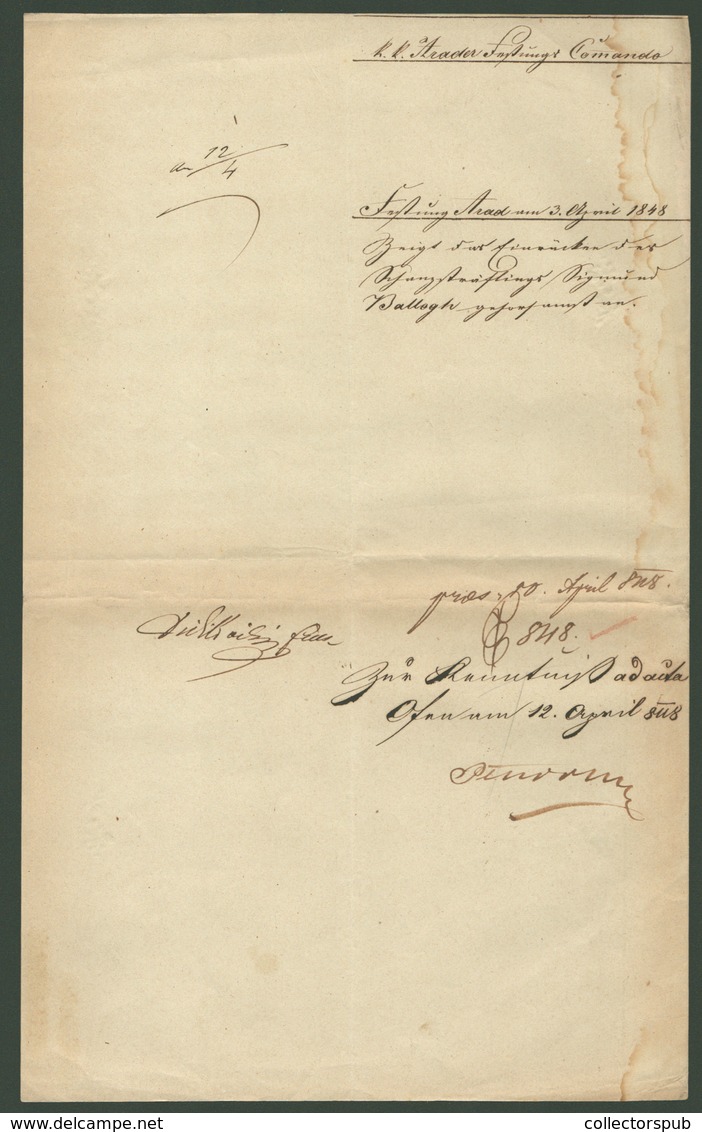 K. K. Arader Festungs Comando
am 12/4
Festung Arad am 3. April 1848
Zeigt das Einrücken des
Schanzsträflings Sigmund
Ballogh gehorsamst an.
præs. 10. April 848.
E 848.
Zur Kenntniß ad acta
Ofen am 12. April 848
collectorspub